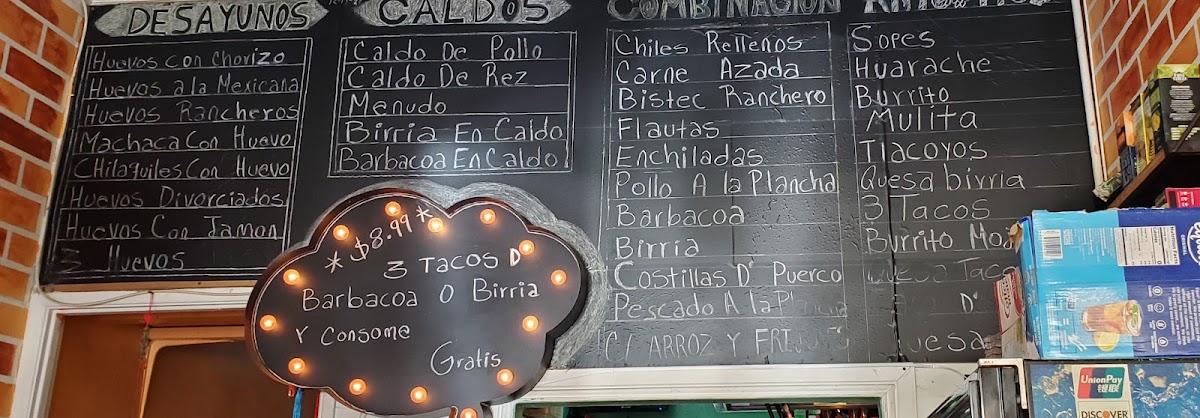 DESAYUNOS
Huevos con Chorizo
Huevos a la Mexicana
Huevos Rancheros
Machaca Con Huevo
CHilaquiles Con Huevo
Huevos Divorciados
Huevos Con Jamon
3 Huevos
CALDOS
Caldo De Pollo
Caldo De Rez
Menudo
Birria En Caldo
Barbacoa En Caldo
*$8.99*
3 Tacos D'
Barbacoa O Birria
Y Consome
Gratis
COMBINACION
Chiles Rellenos
Carne Azada
Bistec Ranchero
Flautas
Enchiladas
Pollo A la Plancha
Barbacoa
Birria
Costillas D' Puerco
Pescado A la Plancha
C/ ARROZ Y FRIJOLES
Sopes
Huarache
Burrito
Mulita
Tlacoyos
Quesabirria
3 Tacos
Burrito
Quesa Taco
D'
Quesa
UnionPay
银联
DISCOVER